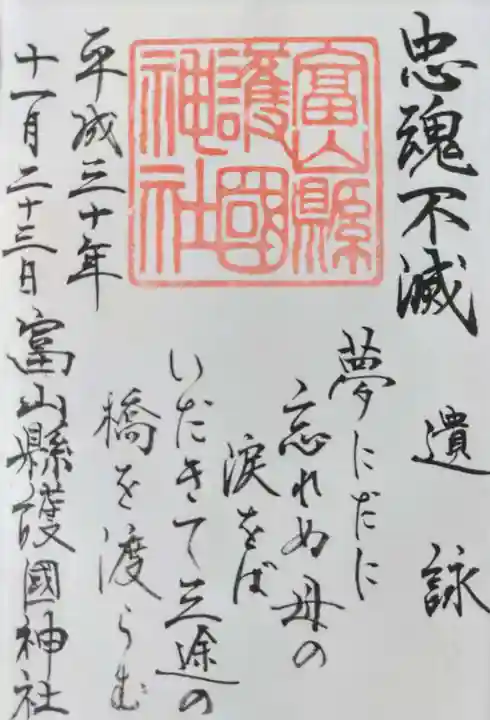 忠魂不滅
遺詠
夢にだに
忘れぬ母の
涙をば
いだきて三途の
橋を渡らむ
富山縣
護國
神社
平成三十年
十一月二十三日
富山縣護國神社